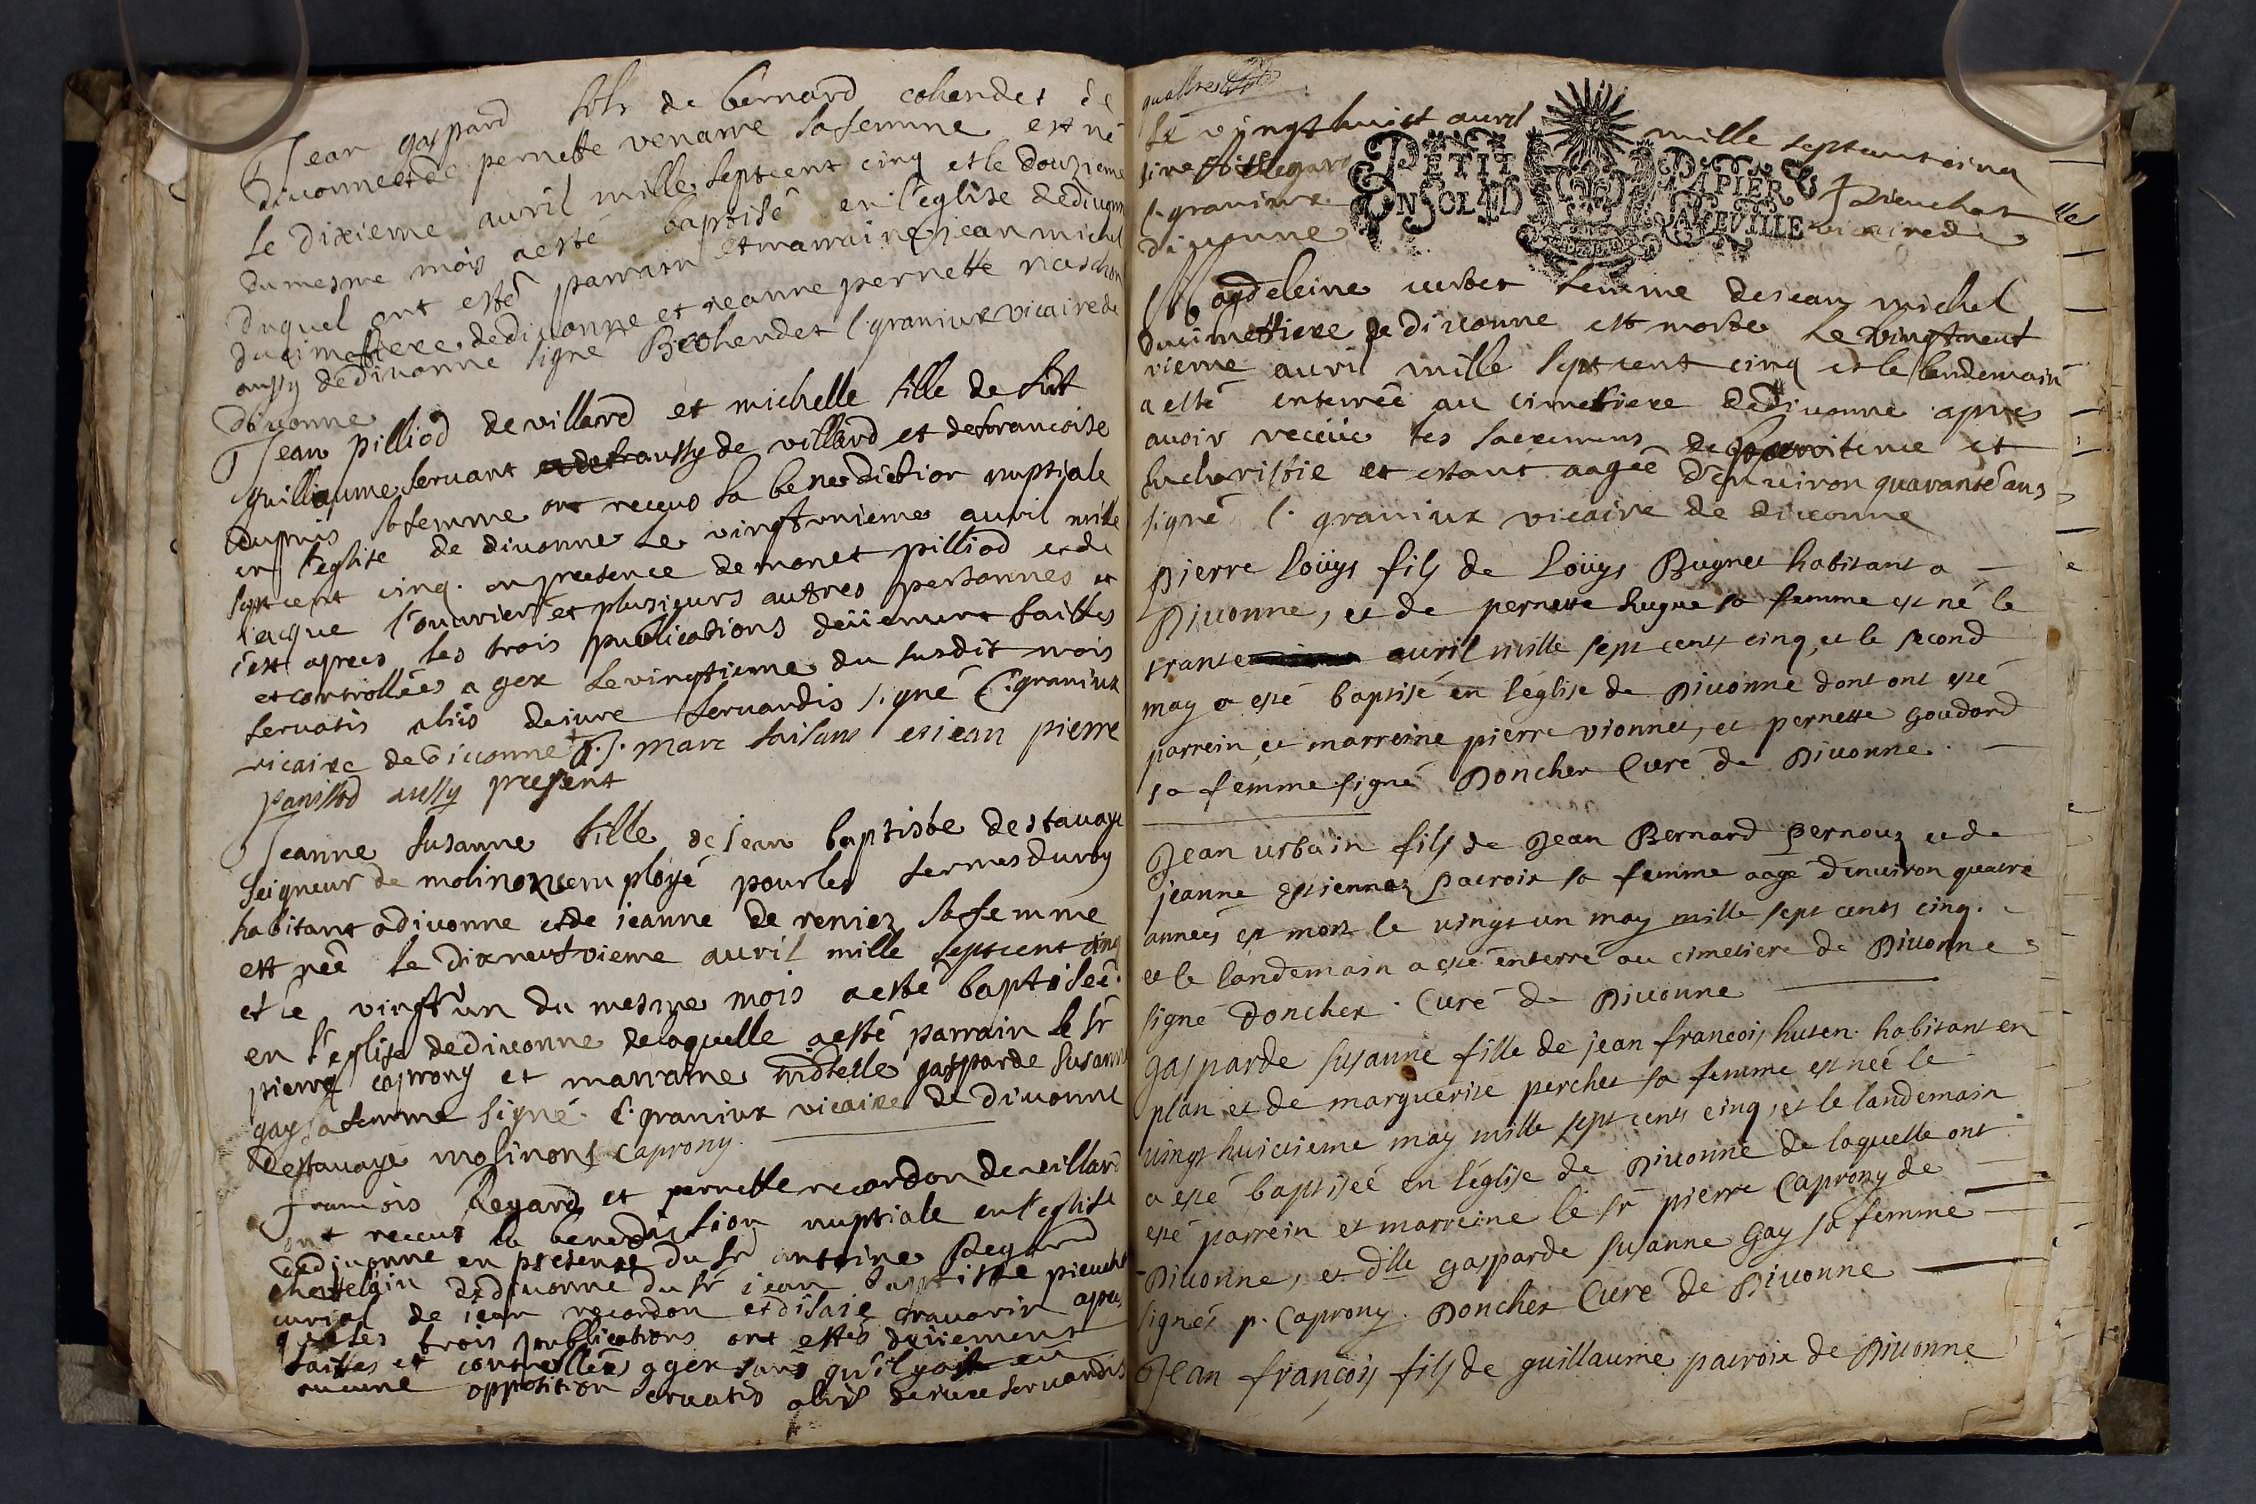 Jean gaspard fils de bernard cohendet de
diuonne et de pernette venarre sa femme est né
le dixieme auril mille septcent cinq et le douzieme
du mesme mois a esté baptisé en l'eglise de diuonne
duquel ont esté parrain et marraine jean michel
du cimettiere de diuonne et jeanne pernette
aussy de diuonne signé B cohendet C. graniux vicaire de
diuonne
Jean pilliod de villard et michelle fille de fût
guilliaume seruant aussy de villard et de francoise
dupuis sa femme ont receus la benediction nuptiale
en l'eglise de diuonne le vingtvnieme auril mille
septcent cinq. en presence de monet pilliod et de
jacque l'ouurier et plusieurs autres personnes et
c'est apres les trois publications deüement faittes
et controllées a gex le vingtieme du susdit mois
seruatis aliis de iure seruandis signé C. graniux
vicaire de diuonne + marc saisans et jean pierre
panissod aussy present
Jeanne susanne fille de jean baptiste destauaye
seigneur de molinons employé pour les fermes du roy
habitant a diuonne et de jeanne de reniez sa femme
est née le dixneufvieme auril mille septcent cinq
et le vingt un du mesme mois a esté baptisée
en l'eglise de diuonne de laquelle a esté parrain le sr
pierre caprony et marraine mdelle gasparde susanne
gay sa femme signé C. graniux vicaire de diuonne
destauaye molinons Caprony
francois Regard et pernette recordon de villard
ont receus la benediction nuptiale en l'eglise
de diuonne en presence du sr antoine Regard
chattelain de diuonne du sr jean baptiste pieuchet
curial de jean recordon et d'isaie trauarin apres
que les trois publications ont estés deüement
faittes et controllées a gex sans qu'il y ait eu
aucune opposition seruatis aliis de iure seruandis
quattres
le vingt huict auril mille septcent cinq
PETIT PAPIER
EN SOL 4 D
C. graniux Pieuchet
diuonne vicaire de
Magdeleine femme de jean michel
du cimettiere de diuonne est morte le vingtneuf
vieme auril mille septcent cinq et le lendemain
a esté enterrée au cimetiere de diuonne apres
auoir receüe les sacremens de penitence et
Eucharistie et estant aagée d'enuiron quarante ans
signé C. graniux vicaire de diuonne
Pierre loüys fils de loüys Bugnet habitant a
Diuonne, et de pernette hugue sa femme est né le
trante auril mille sept cents cinq, et le second
may a esté baptisé en l'église de Diuonne dont ont esté
parrein et marreine pierre vionnet, et pernette Goudard
sa femme signé Doncher Curé de Diuonne.
Jean urbain fils de Jean Bernard Pernouz et de
jeanne estiennaz Pacroix sa femme aagé d'enuiron quatre
années est mort le vingt un may mille sept cents cinq.
et le landemain a esté enterré au cimetiere de Diuonne
signé Doncher. Curé de Diuonne
Gasparde susanne fille de jean francois huten habitant en
plan et de marguerite perchet sa femme est neé le
vingt huictieme may mille sept cents cinq, et le landemain
a esté baptiseé en l'église de Diuonne de laquelle ont
esté parrein et marreine le sr pierre Caprony de
Diuonne, et dlle gasparde susanne Gay sa femme
signés p. Caprony. Doncher Curé de Diuonne
Jean françois fils de guillaume pacroix de Diuonne